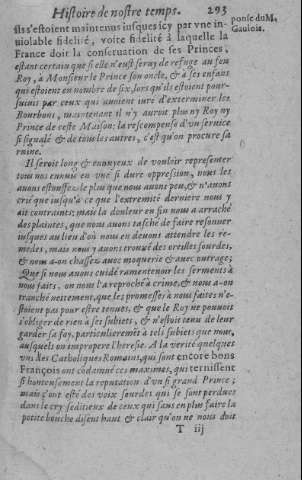 Histoire de nostre temps. 293
ponse du M.
Gaulois.
ils s'estoient maintenus iusques icy par vne in-
uiolable fidelité, voire fidelité à laquelle la
France doit la conseruation de ses Princes,
estant certain que si elle n'eust seruy de refuge au feu
Roy, à Monsieur le Prince son oncle, & à ses enfans
qui estoient en nombre de six, lors qu'ils estoient pour-
suiuis par ceux qui auoient iuré d'exterminer les
Bourbons, maintenant il n'y auroit plus ny Roy ny
Prince de ceste Maison: la rescompense d'vn seruice
si signalé & de tous les autres, c'est qu'on procure sa
ruine.
Il seroit long & ennuyeux de vouloir representer
tous nos ennuis en vne si dure oppression, nous les
auons estouffez le plus que nous auons peu, & n'auons
crié que iusqu'à ce que l'extremité derniere nous y
ait contraints; mais la douleur en fin nous a arraché
des plaintes, que nous auons tasché de faire resonner
iusques au lieu d'où nous en deuons attendre les re-
medes, mais nous y auons trouué des oreilles sourdes,
& nous a-on chassez auec moquerie & auec outrage;
Que si nous auons cuidé ramenteuoir les serments à
nous faits, on nous l'a reproché à crime, & nous a-on
tranché nettement, que les promesses à nous faites n'e-
stoient pas pour estre tenues, & que le Roy ne pouuoit
s'obliger de rien à ses subiets, & n'estoit tenu de leur
garder sa foy, particulierement à tels subiets que nous,
ausquels on impropere l'heresie. A la verité quelques
vns des Catholiques Romains, qui sont encore bons
François ont condamné ces maximes, qui ternissent
si honteusement la reputation d'vn si grand Prince;
mais ç'ont esté des voix sourdes qui se sont perdues
dans le cry seditieux de ceux qui sans en plus faire la
petite bouche disent haut & clair qu'on ne nous doit
T iij